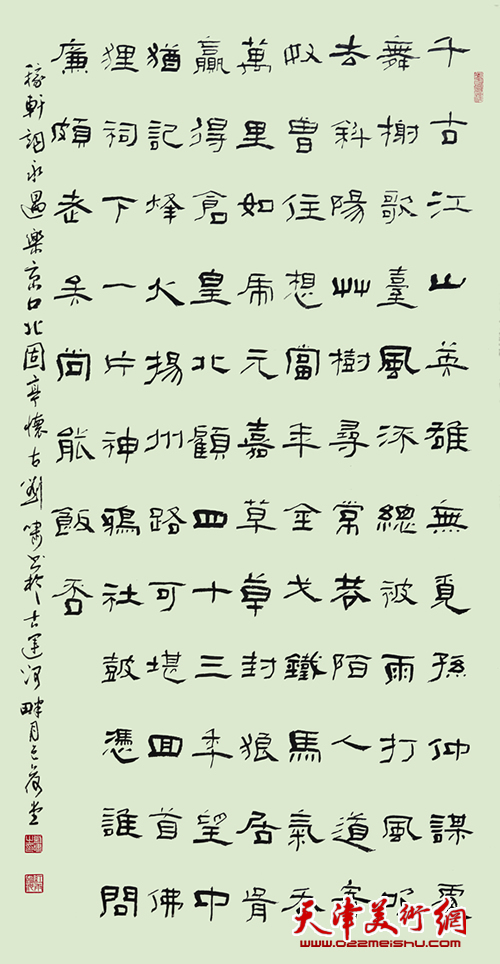 千古江山英雄無覓孫仲謀處
舞榭歌臺風流總被雨打風吹
去斜陽艸樹尋常巷陌人道寄
奴曾住想當年金戈鐵馬氣吞
萬里如虎元嘉草草封狼居胥
贏得倉皇北顧四十三年望中
猶記烽火揚州路可堪回首佛
狸祠下一片神鴉社鼓憑誰問
廉頗老矣尚能飯否
稼軒詞永遇樂京口北固亭懷古劉書於古運河畔月堂
天津美術網
www.022meishu.com